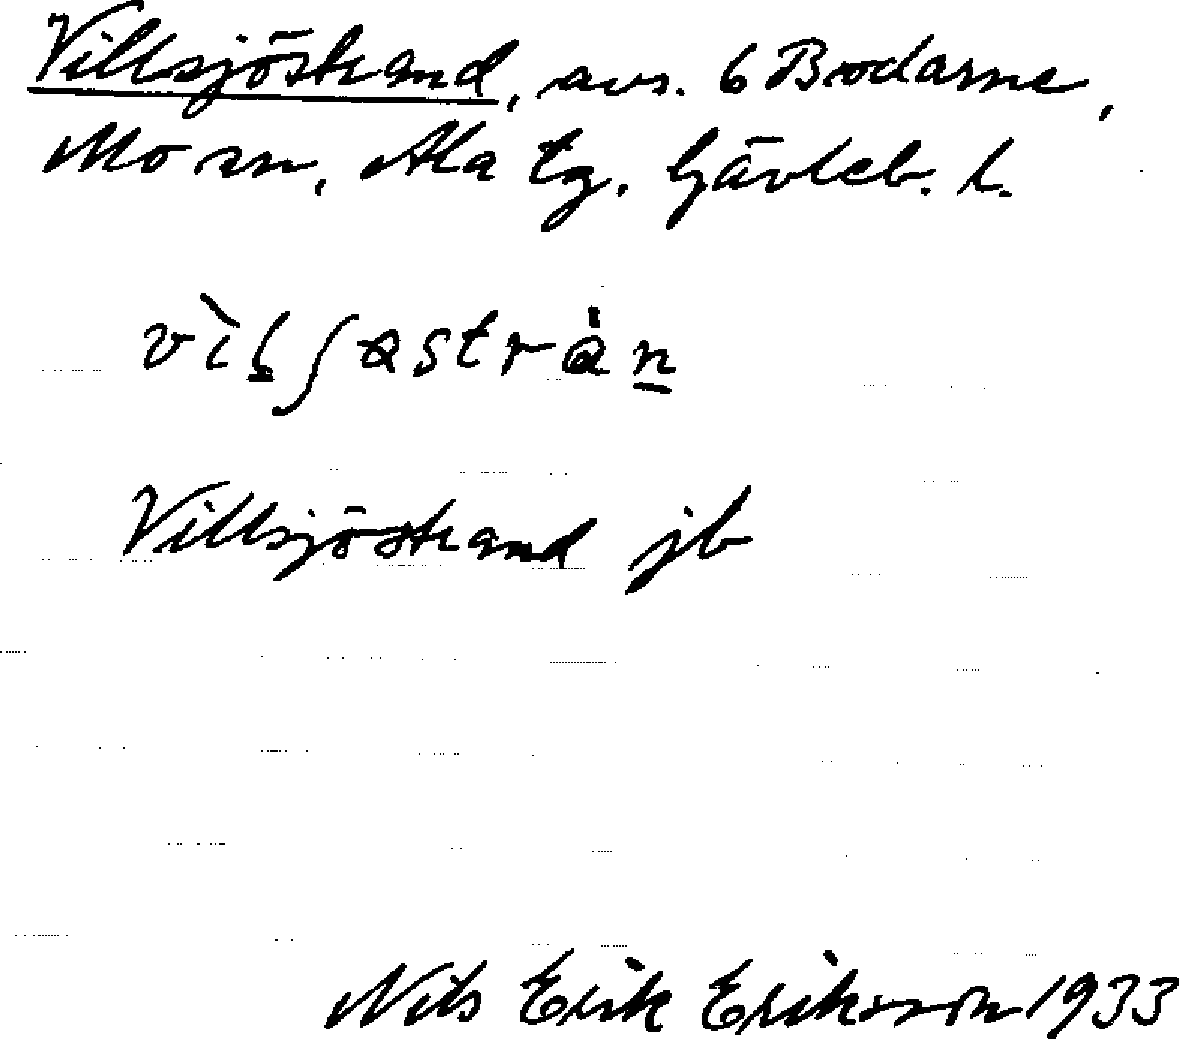 Villsjöstrand, avs. 6 Bodarne,
Mo sn, Ala tg. Gävleb. l.
Villsjöstrand jb
Nils Erik Eriksson 1933